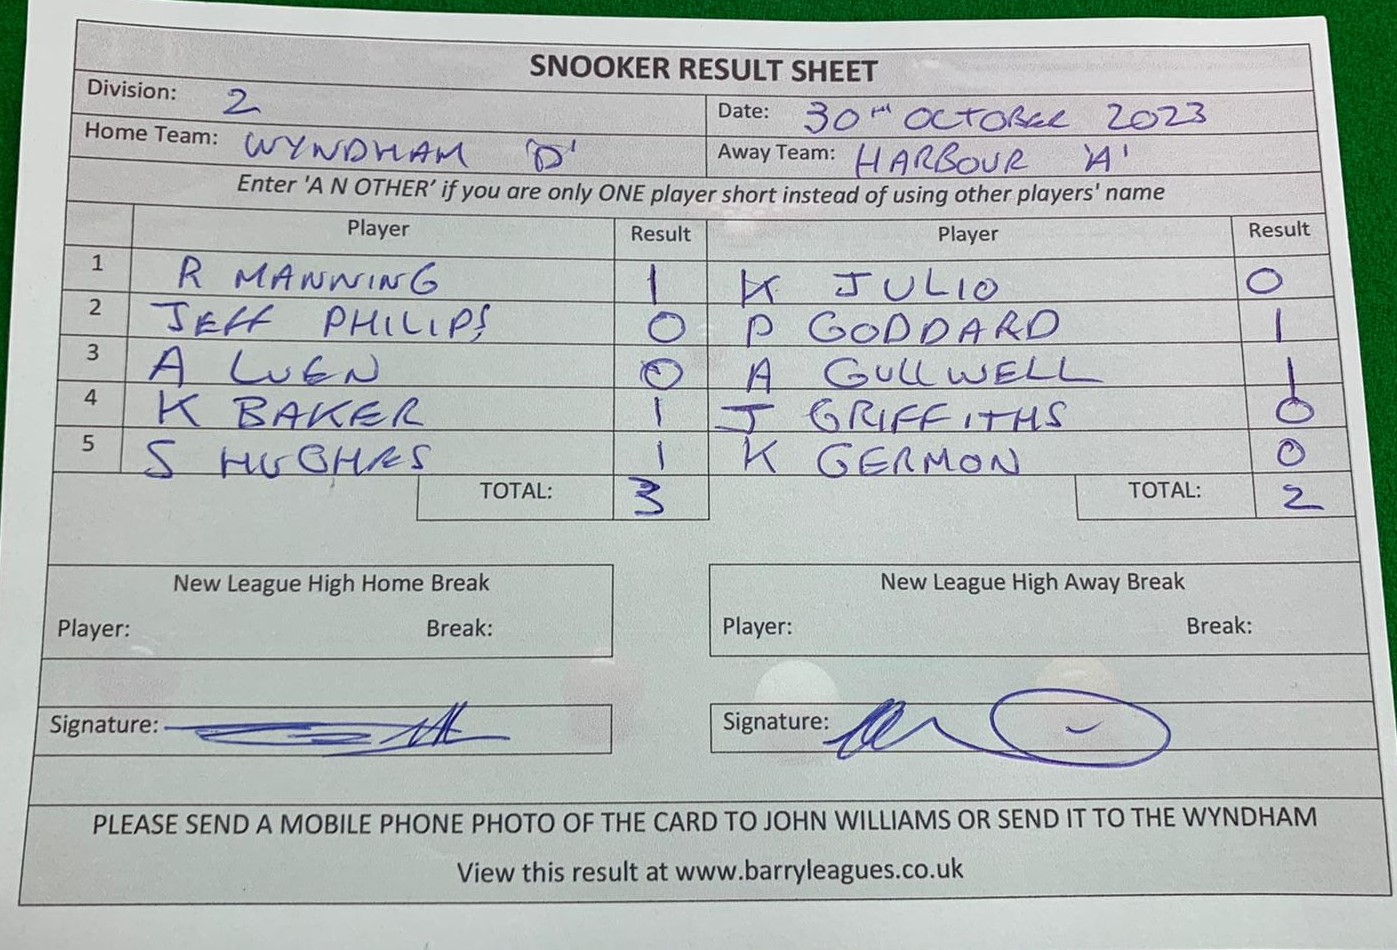 SNOOKER RESULT SHEET
Division: 2 Date: 30TH OCTOBER 2023
Home Team: WYNDHAM 'D' Away Team: HARBOUR 'A'
Enter 'A N OTHER' if you are only ONE player short instead of using other players' name
Player Result Player Result
1 R MANNING 1 K JULIO 0
2 JEFF PHILIPS 0 P GODDARD 1
3 A LUEN 0 A GULLWELL 1
4 K BAKER 1 J GRIFFITHS 0
5 S HUGHES 1 K GERMON 0
TOTAL: 3 TOTAL: 2
New League High Home Break New League High Away Break
Player: Break: Player: Break:
Signature: Signature:
PLEASE SEND A MOBILE PHONE PHOTO OF THE CARD TO JOHN WILLIAMS OR SEND IT TO THE WYNDHAM
View this result at www.barryleagues.co.uk